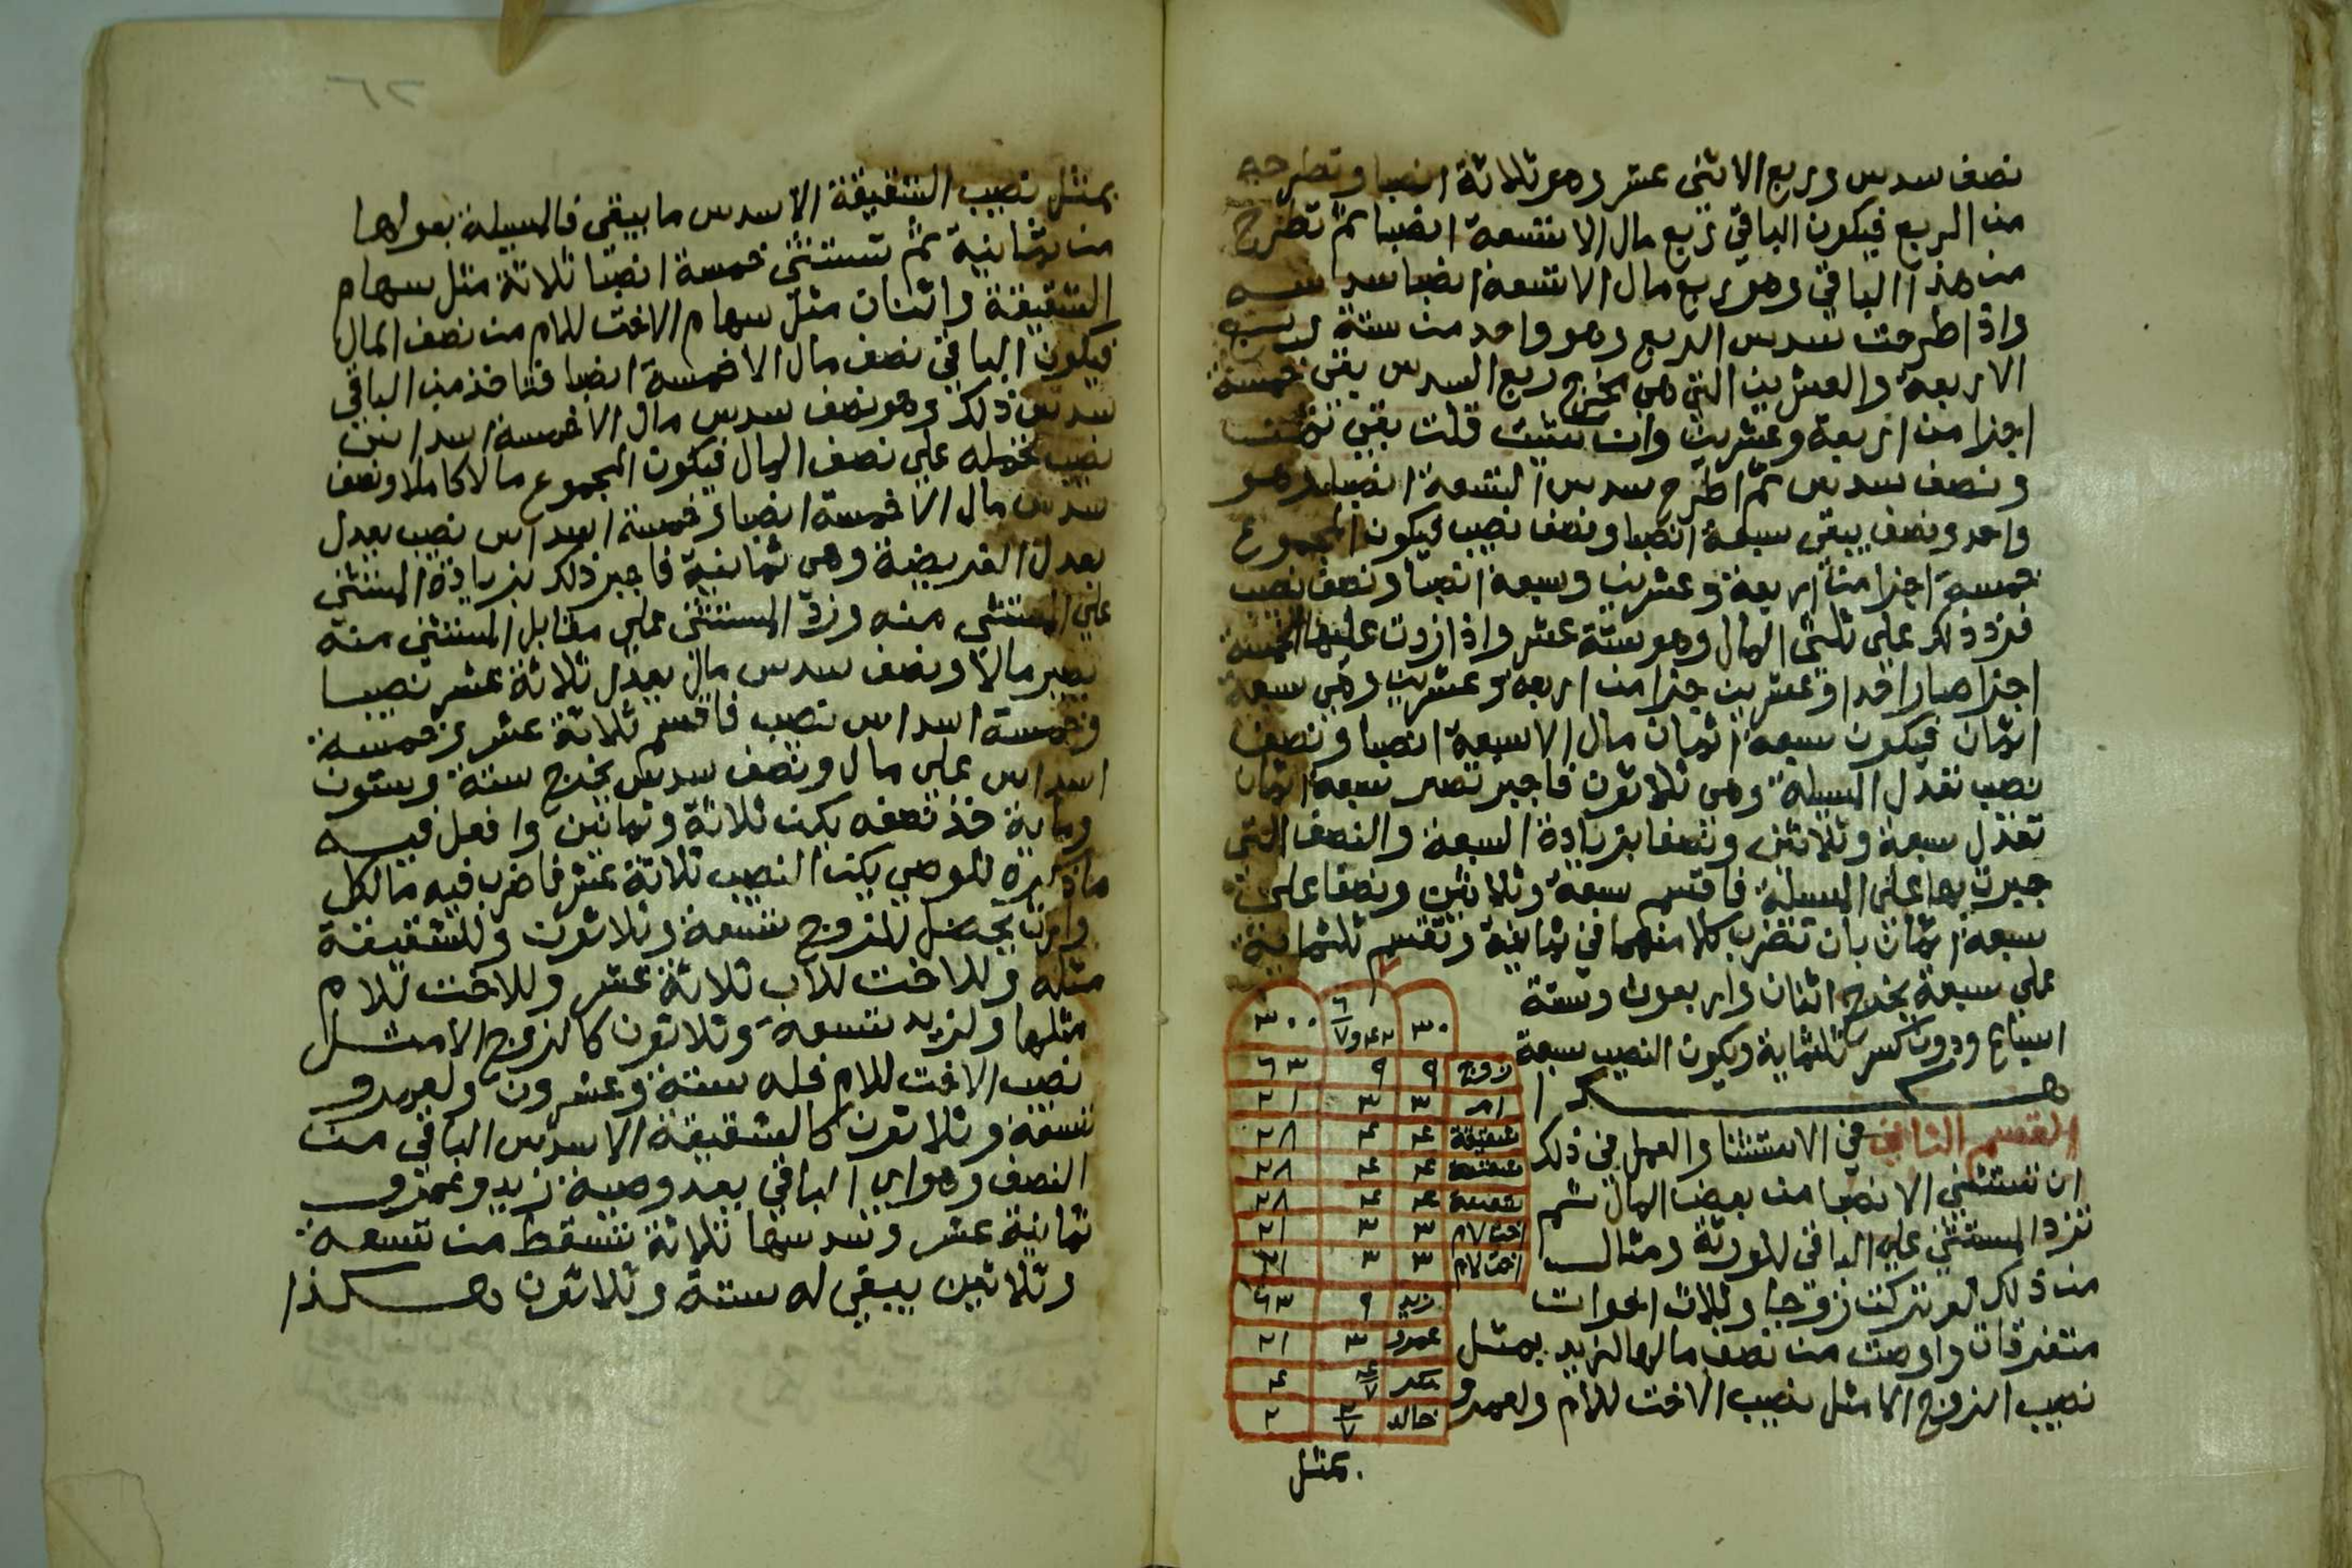 نصف سدس وربع الاثني عشر وهو ثلاثة انصبا وتطرحه
من الربع فيكون الباقي ربع مال الا تسعة انصبا ثم تطرح
من هذا الباقي وهو ربع مال الا تسعة انصبا سدسه
واذا طرحت سدس الربع وهو واحد من ستة
الاربعة والعشرين التي هي مخرج ربع السدس بقي خمسة
اجزا من اربعة وعشرين وان شيت قلت بقي ثمن
ونصف سدس ثم اطرح سدس التسعة انصبا وهو
واحد ونصف يبقي سبعة انصبا ونصف نصيب فيكون المجموع
خمسة اجزا من اربعة وعشرين وسبعة انصبا ونصف نصيب
فزد ذلك علي ثلثي المال وهو ستة عشر واذا زدت عليها الخمسة
اجزا صار احدا وعشرين جزا من اربعة وعشرين وهي سبعة
اثمان فيكون سبعة اثمان مال الا سبعة انصبا ونصف
نصيب تعدل المسيلة وهي ثلاثون فاجبر تصر سبعة اثمان
تعدل سبعة وثلاثين ونصفا بزيادة السبعة والنصف التي
جبرت بها علي المسيلة فاقسم سبعة وثلاثين ونصفا علي
سبعة اثمان بان تضرب كلا منهما في ثمانية وتقسم ثلثماية
علي سبعة يخرج اثنان واربعون وستة
اسباع ودون كسر ثلثماية ويكون النصيب سبعة
هكذا
٣٠ ٤٢ و ٦/٧ ٣٠٠
زوج ٩ ٩ ٦٣
ام ٣ ٣ ٢١
شقيقة ٤ ٤ ٢٨
شقيقة ٤ ٤ ٢٨
شقيقة ٤ ٤ ٢٨
اخت لام ٣ ٣ ٢١
اخت لام ٣ ٣ ٢١
زيد ٩ ٦٣
عمرو ٣ ٢١
بكر ٤/٧ ٤
خالد ٢/٧ ٢
القسم الثاني في الاستثنا والعمل في ذلك
ان تستثني الانصبا من بعض المال ثم
تزد المستثني علي الباقي للورثة ومثال
من ذلك لو تركت زوجا وثلاث اخوات
متفرقات واوصت من نصف مالها لزيد بمثل
نصيب الزوج الا مثل نصيب الاخت للام ولعمرو
بمثل
بمثل نصيب الشقيقة الا سدس ما يبقي فالمسيلة بعولها
من ثمانية ثم تستثني خمسة انصبا ثلاثة مثل سهام
الشقيقة واثنان مثل سهام الاخت للام من نصف المال
فيكون الباقي نصف مال الا خمسة انصبا فتاخذ من الباقي
سدس ذلك وهو نصف سدس مال الا خمسة اسداس
نصيب تحمله علي نصف المال فيكون المجموع مالا كاملا ونصف
سدس مال الا خمسة انصبا وخمسة اسداس نصيب يعدل
يعدل الفريضة وهي ثمانية فاجبر ذلك بزيادة المستثني
علي المستثني منه وزد المستثني علي مقابل المستثني منه
يصير مالا ونصف سدس مال يعدل ثلاثة عشر نصيبا
وخمسة اسداس نصيب فاقسم ثلاثة عشر وخمسة
اسداس علي مال ونصف سدس يخرج ستة وستون
وماية خذ نصفه يكن ثلاثة وثمانين وافعل فيه
ما ذكره للوصي يكن النصيب ثلاثة عشر فاضرب فيه ما لكل
وارث يحصل للزوج تسعة وثلاثون وللشقيقة
مثله وللاخت للاب ثلاثة عشر وللاخت للام
مثلها ولزيد تسعة وثلاثون كالزوج الا مثل
نصيب الاخت للام فله ستة وعشرون ولعمرو
تسعة وثلاثون كالشقيقة الا سدس الباقي من
النصف وهو اي الباقي بعد وصية زيد وعمرو
ثمانية عشر وسدسها ثلاثة تسقط من تسعة
وثلاثين يبقي له ستة وثلاثون هكذا